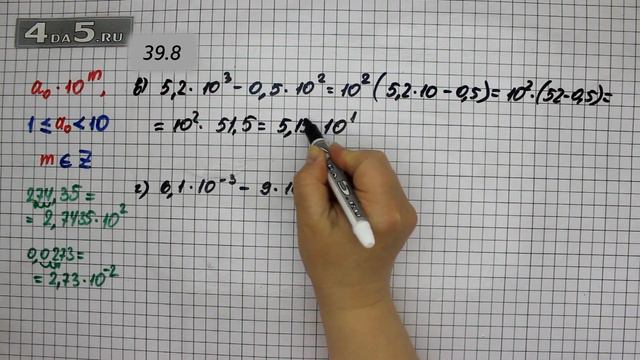 4DA5.RU
39.8
a₀ · 10ᵐ,
1 ≤ a₀ < 10
m ∈ Z
274,35 =
= 2,7435 · 10²
0,0273 =
= 2,73 · 10⁻²
в) 5,2 · 10³ - 0,5 · 10² = 10² ( 5,2 · 10 - 0,5) = 10² · (52 - 0,5) =
= 10² · 51,5 = 5,15 · 10¹
г) 6,1 · 10⁻³ - 9 · 1